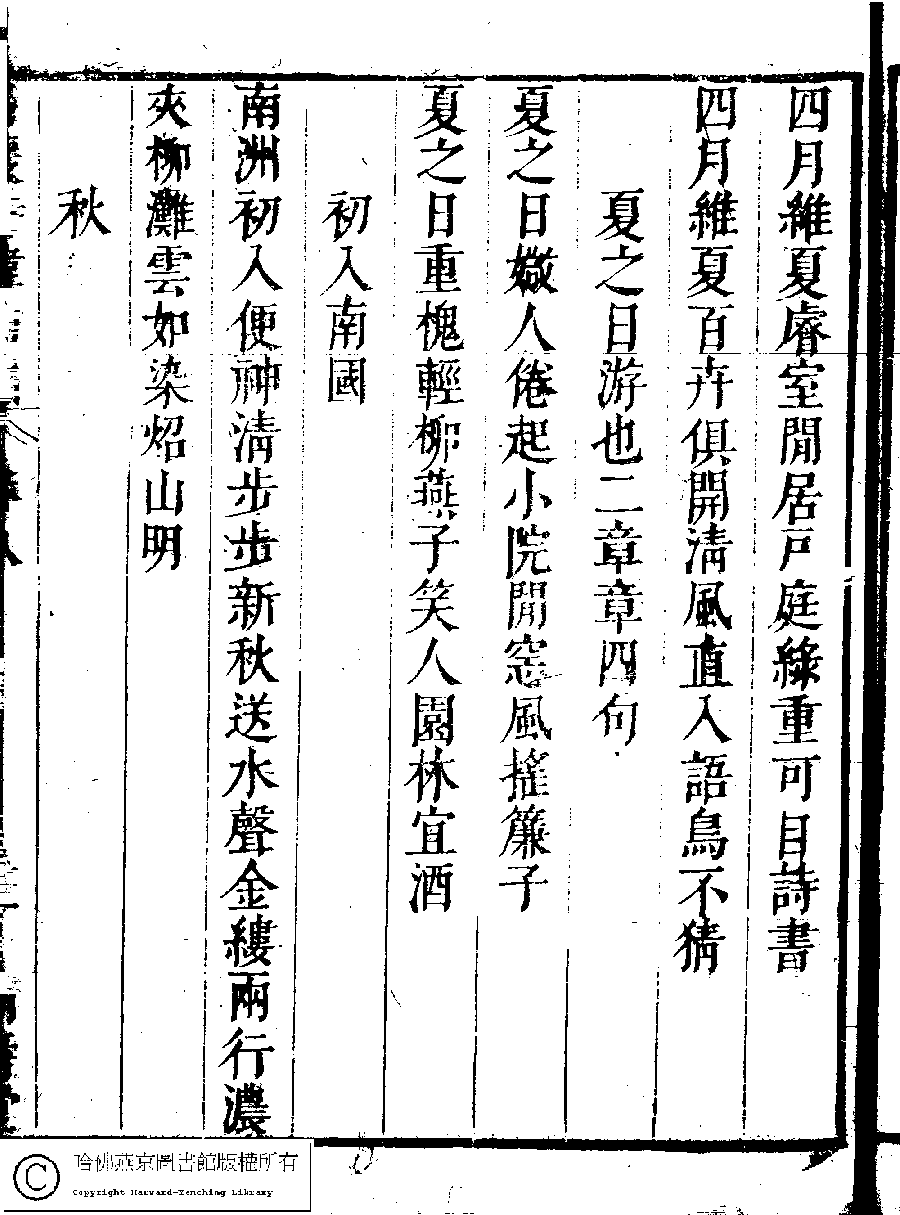 四月維夏睿室閒居戸庭綠重可目詩書
四月維夏百卉俱開清風直入語鳥不猜
夏之日游也二章章四句
夏之日嫩人倦起小院閒窓風搖簾子
夏之日重槐輕柳燕子笑人園林宜酒
初入南國
南洲初入便神清步步新秋送水聲金縷兩行濃
夾柳灘雲如染炤山明
秋
哈佛燕京圖書館版權所有
Copyright Harvard-Yenching Library